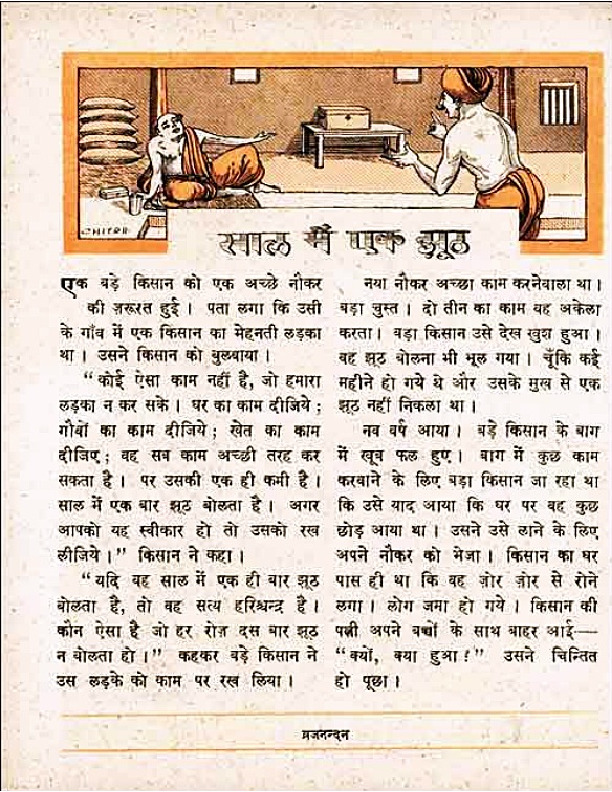 CHITRA
साल में एक झूठ
एक बड़े किसान को एक अच्छे नौकर
की ज़रूरत हुई। पता लगा कि उसी
के गाँव में एक किसान का मेहनती लड़का
था। उसने किसान को बुलवाया।
"कोई ऐसा काम नहीं है, जो हमारा
लड़का न कर सके। घर का काम दीजिये;
गौवों का काम दीजिये; खेत का काम
दीजिए; वह सब काम अच्छी तरह कर
सकता है। पर उसकी एक ही कमी है।
साल में एक बार झूठ बोलता है। अगर
आपको यह स्वीकार हो तो उसको रख
लीजिये।" किसान ने कहा।
"यदि वह साल में एक ही बार झूठ
बोलता है, तो वह सत्य हरिश्चन्द्र है।
कौन ऐसा है जो हर रोज़ दस बार झूठ
न बोलता हो।" कहकर बड़े किसान ने
उस लड़के को काम पर रख लिया।
नया नौकर अच्छा काम करनेवाला था।
बड़ा चुस्त। दो तीन का काम वह अकेला
करता। बड़ा किसान उसे देख खुश हुआ।
वह झूठ बोलना भी भूल गया। चूँकि कई
महीने हो गये थे और उसके मुख से एक
झूठ नहीं निकला था।
नव वर्ष आया। बड़े किसान के बाग
में खूब फल हुए। बाग में कुछ काम
करवाने के लिए बड़ा किसान जा रहा था
कि उसे याद आया कि घर पर वह कुछ
छोड़ आया था। उसने उसे लाने के लिए
अपने नौकर को भेजा। किसान का घर
पास ही था कि वह ज़ोर ज़ोर से रोने
लगा। लोग जमा हो गये। किसान की
पत्नी अपने बच्चों के साथ बाहर आई—
"क्यों, क्या हुआ?" उसने चिन्तित
हो पूछा।
व्रजनन्दन